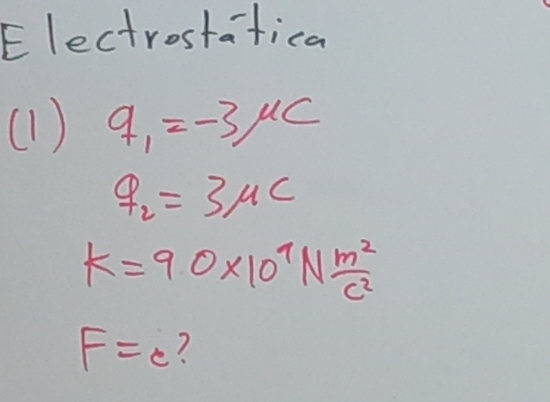 Electrostática
(1) q₁ = -3 μC
q₂ = 3 μC
K = 9.0 × 10⁹ N m²/C²
F = ¿?